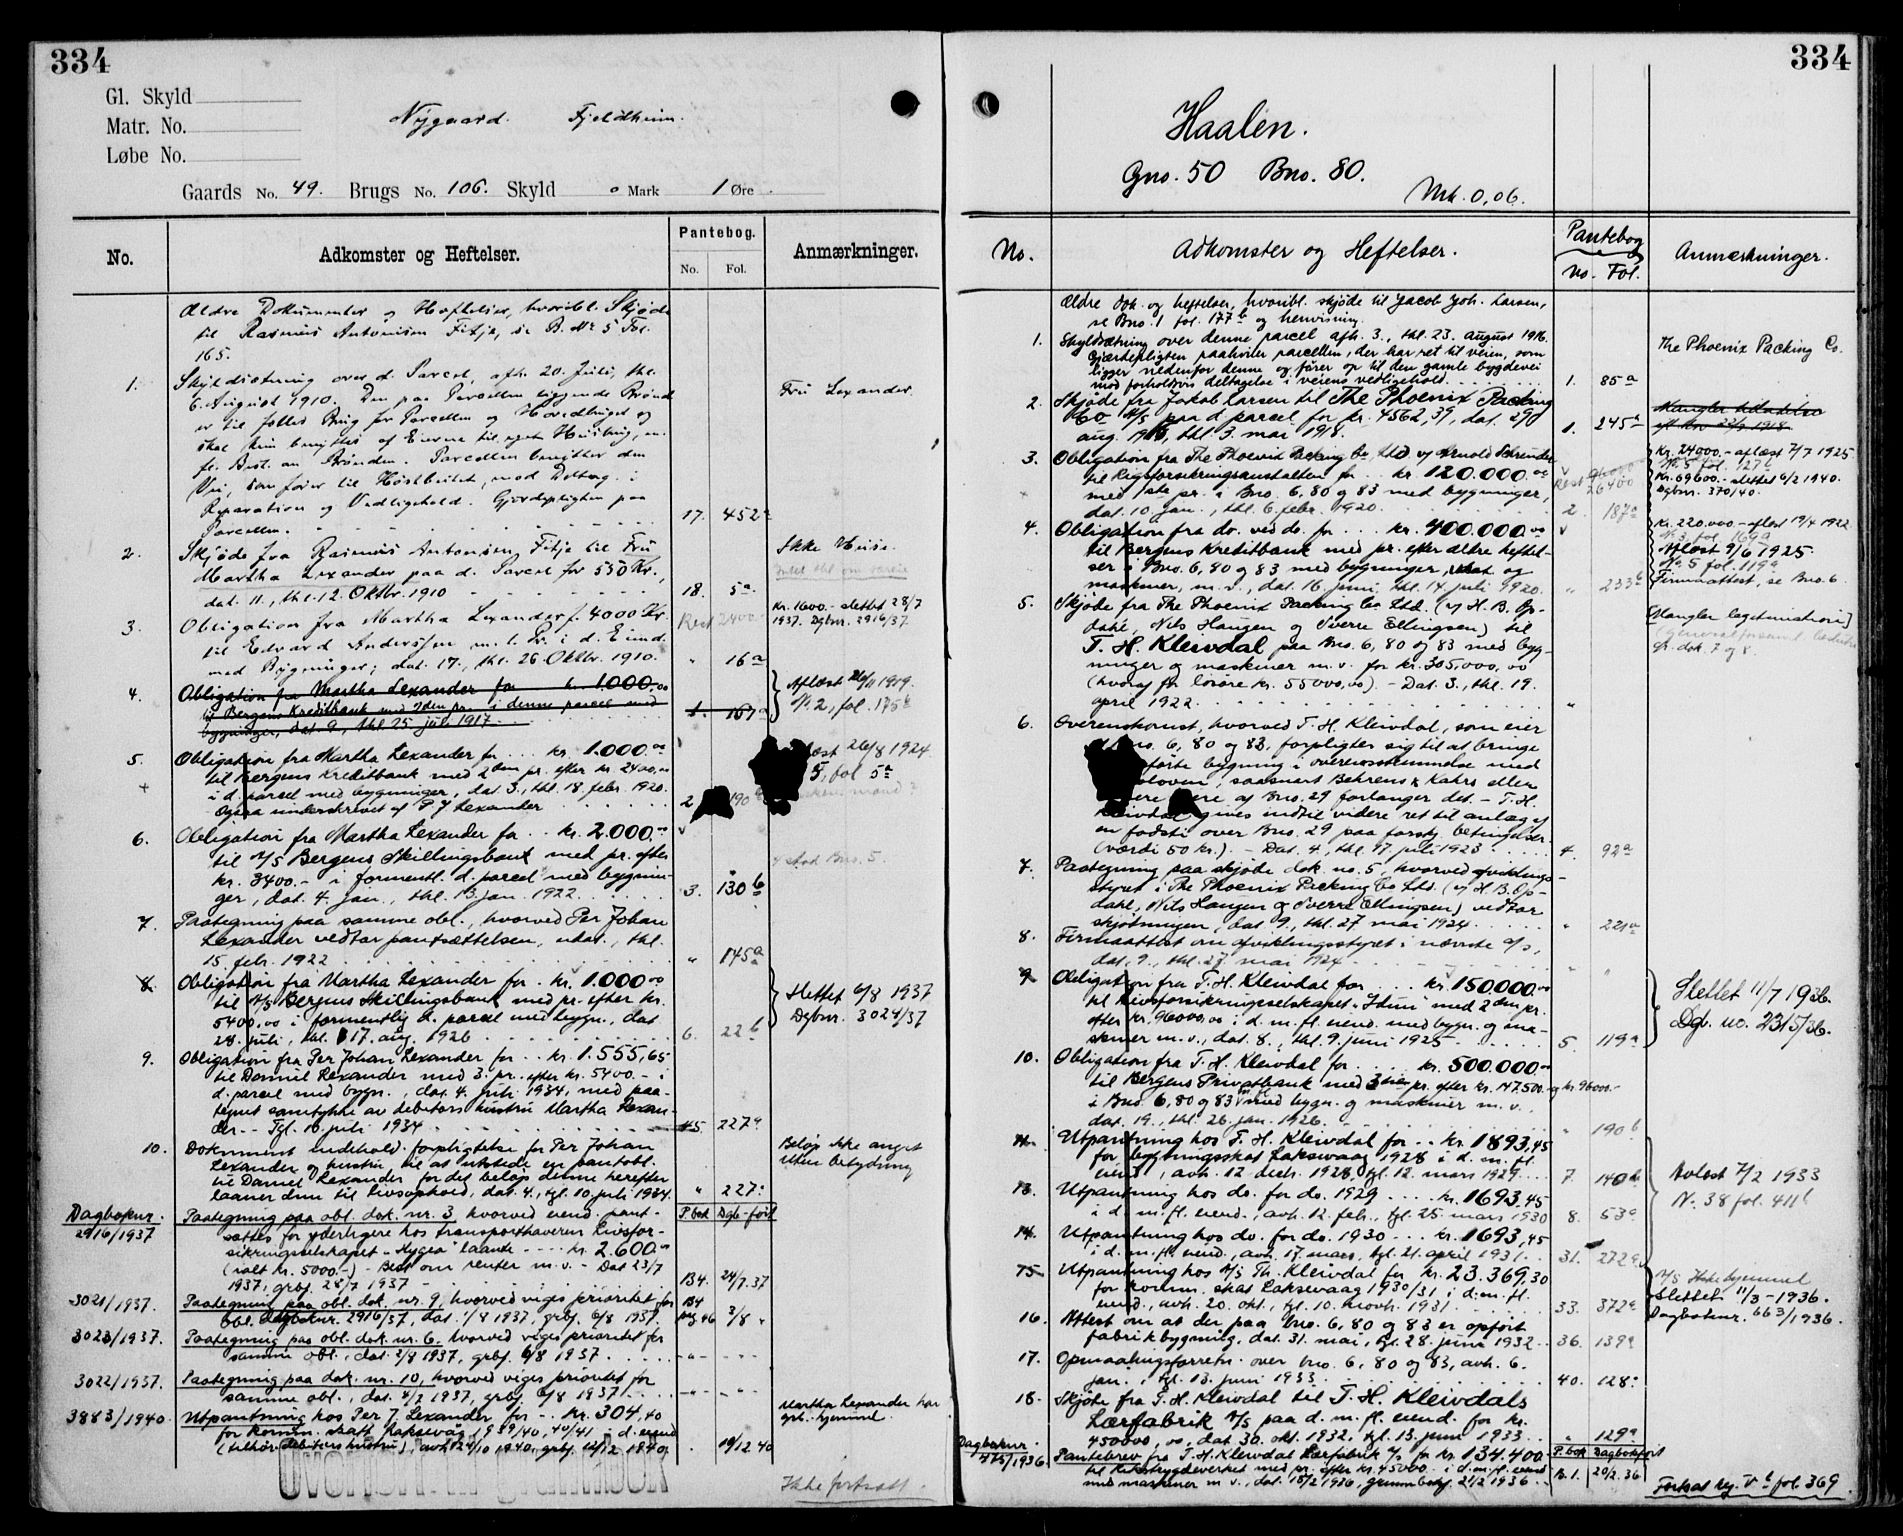 334
Gl. Skyld
Matr. No.
Løbe No.
Nygaard. Fjeldheim.
Gaards No. 49. Brugs No. 106. Skyld 0 Mark 1 Øre
No. Adkomster og Heftelser. Pantebog. No. Fol. Anmærkninger.
Ældre Dokumenter og Heftelser, hvoribl. Skjøde
til Rasmus Antonisen Fitje, se B. No 5 Fol.
165.
1. Skyldsætning over d. Parcel, afh. 20. Juli, thl.
6. August 1910. Den paa Parcellen liggende Brønd
er til fælles Brug for Parcellen og Hovedbruget og
skal kun benyttes af Eierne til eget Husbrug, m.
fl. Best. om Brønden. Parcellen benytter den
Vei, som fører til Høstbeitet, mod Deltag. i
Reparation og Vedligehold. Gjerdepligten paa
Parcellen. 17. 452a
Fru Lexander.
2. Skjøde fra Rasmus Antonisen Fitje til Fru
Martha Lexander paa d. Parcel for 550 Kr.,
dat. 11., thl. 12. Oktbr. 1910 18. 5a
Ikke Huse.
3. Obligation fra Martha Lexander f. 4000 Kr. Rest 2400
til Edvard Anderssen m. 1. Pr. i d. Eiend.
med Bygninger; dat. 17., thl. 26. Oktbr. 1910. " 16a
Kr. 1600.- slettet 28/7
1937. Dgbnr. 2916/37.
4. Obligation fra Martha Lexander for kr. 1.000,00
til Bergens Kreditbank med 2den pr. i denne parcel med
bygninger, dat. 9., thl. 25. juli 1917. 1. 167a
Aflæst 26/11 1919.
N. 2, fol. 175b
5. Obligation fra Martha Lexander for kr. 1.000,00
til Bergens Kreditbank med 2den pr. efter kr. 2400,00
i d. parcel med bygninger, dat. 3., thl. 18. febr. 1920.
Ogsaa underskrevet af P. J. Lexander 2 190b
læst 26/8 1924
5, fol 5a
6. Obligation fra Martha Lexander for kr. 2.000,00
til A/S Bergens Skillingsbank med pr. efter
kr. 3400.- i formentl. d. parcel med bygnin-
ger, dat. 4. jan., thl. 13. jan. 1922 3. 130b
7. Paategning paa samme obl., hvorved Per Johan
Lexander vedtar pantsættelsen, udat., thl.
15. febr. 1922 " 145a
8. Obligation fra Martha Lexander for kr. 1.000,00
til A/S Bergens Skillingsbank med pr. efter kr.
5400,00 i formentlig d. parcel med bygn., dat.
28. juli, thl. 17. aug. 1926 6. 22b
Slettet 6/8 1937
Dgbnr. 3024/37
9. Obligation fra Per Johan Lexander for kr. 1.555,65
til Daniel Lexander med 3. pr. efter kr. 5400.- i
d. parcel med bygn., dat. 4. juli 1934, med paa-
tegnet samtykke av debitors hustru Martha Lexan-
der. - Tgl. 10. juli 1934 45. 227a
10. Dokument indehold. forpligtelse for Per Johan
Lexander og hustru til at utstede en pantobl.
til Daniel Lexander for det beløp denne herefter
laaner dem til livsophold, dat. 4., tgl. 10. juli 1934. " 227a
Beløp ikke angit
Uten betydning
Dagboknr. P.bok Dgb-ført
2916/1937 Paategning paa obl. dok. nr. 3, hvorved eiend. pant-
sættes for yderligere hos transporthaveren Livsfor-
sikringsselskapet "Hygea" laante kr. 2.600,00
(ialt kr. 5000.-) - Best om renter m.v. - Dat 23/7
1937, grbf. 28/7 1937 B4. 24/7.37
3021/1937. Paategning paa obl. dok. nr. 9, hvorved viges prioritet for B4
obl. Dagboknr. 2916/37, dat. 1/8 1937, grbf. 6/8 1937. 3/8 "
3023/1937. Paategning paa obl. dok. nr. 6, hvorved viges prioritet for
samme obl., dat. 2/8 1937, grbf. 6/8 1937 -"- -"-
3022/1937. Paategning paa dok. nr. 10, hvorved viges prioritet for
samme obl., dat. 4/8 1937, grbf. 6/8 1937 -"- -"-
3883/1940. Utpantning hos Per J. Lexander for kr. 304,40
for komm. skatt Laksevåg 1939/40, 40/41 - d. eiend
(tilhør. debitors hustru), avh. 24/10 1940, grbf. 12/12 1940. " 10/12 40
Martha Lexander har
grb. hjemmel.
Ikke fortsatt.
334
Haalen.
Gno. 50 Bno. 80.
Mrk. 0,06.
No. Adkomster og Heftelser. Pantebog No. Fol. Anmerkninger.
Ældre dok. og heftelser, hvoribl. skjøde til Jacob Joh. Larsen,
se Bno. 1 fol. 177b og henvisning.
1. Skyldsætning over denne parcel afh. 3., thl. 23. august 1916.
Gjerdepligten paahviler parcellen, der har ret til veien, som
ligger nedenfor denne og fører op til den gamle bygdevei
mod forholdsvis deltagelse i veiens vedligehold. 1. 85a
The Phoenix Packing Co.
2. Skjøde fra Jakob Larsen til The Phoenix Packing
Co A/S paa d. parcel for kr. 4562,39, dat. 29.
aug. 1916, thl. 3. mai 1918. 1. 245a
3. Obligation fra The Phoenix Packing Co. Ltd v/ Arnold Schrender
til Rigsforsikringsanstalten for kr. 120.000,00
med 1ste pr. i Bno. 6, 80 og 83 med bygninger,
dat. 10. jan., thl. 6. febr. 1920. 2 187a
Kr. 24000.- aflæst 7/7 1925.
N. 5 fol. 127a
Kr. 69600.- slettet 6/2 1940.
Dgbnr. 370/40.
4. Obligation fra do. ved do. for kr. 400.000,00
til Bergens Kreditbank med pr. efter ældre heftel-
ser i Bno. 6, 80 og 83 med bygninger, og
maskiner, m.v., dat. 16. juni, thl. 14. juli 1920. " 233b
Kr. 220.000.- aflæst 19/4 1922
N. 3, fol. 169a
Aflæst 9/6 1925.
N. 5 fol. 119a
Firmaattest, se Bno. 6.
5. Skjøde fra The Phoenix Packing Co. Ltd. (v/ H. B. Op-
dahl, Nils Haugen og Sverre Ellingsen) til
T. H. Kleivdal, paa Bno. 6, 80 og 83 med byg-
ninger og maskiner m.v. for kr. 305,000,00
(hvoraf for løsøre kr. 55000,00). - Dat. 3., thl. 19.
april 1922. "
Mangler legitimation
Se dok. 7 og 8.
6. Overenskomst, hvorved T. H. Kleivdal, som eier
no. 6, 80 og 83, forpligter sig til at bringe
førte bygning i overensstemmelse med
loven, saasnart Behrens & Kahrs eller
ere af Bno. 29 forlanger det. - T. H.
Kleivdal gives indtil videre ret til anlæg af
en fodsti over Bno. 29 paa forsk. betingelser.
(Værdi 50 kr.). - Dat. 4., thl. 17. juli 1923 4. 92a
7. Paategning paa skjøde dok. no. 5, hvorved afviklings-
styret i The Phoenix Packing Co Ltd. (v/ H. B. Op-
dahl, Nils Haugen og Sverre Ellingsen) vedtar
skjøtningen, dat. 9., thl. 27. mai 1924. " 221a
8. Firmaattest om afviklingsstyret i nævnte A/S,
dat. 9., thl. 27. mai 1924. " "
9. Obligation fra T. H. Kleivdal for kr. 150.000,00
til Livsforsikringsselskapet "Idun" med 2den pr.
efter kr. 96000,00 i d. m. fl. eiend. med bygn. og ma-
skiner m.v., dat. 8., thl. 9. juni 1925 5. 119a
Slettet 11/7 1936.
Dgb. no. 2315/36.
10. Obligation fra T. H. Kleivdal for kr. 500.000,00
til Bergens Privatbank med 3die pr. efter kr. 147.500.- og kr. 96000.-
i Bno. 6, 80 og 83 med bygn. og maskiner m.v.,
dat. 19., thl. 26. jan. 1926. " 190b
11. Utpantning hos T. H. Kleivdal for kr. 1893,45
for bygningsskat Laksevaag 1928 i d. m. fl.
eiend., avh. 12. decb. 1928, tgl. 12. mars 1929 7. 140b
Avlæst 7/2 1933
N. 38 fol. 411b
13. Utpantning hos do. for do. 1929 kr. 1693,45
i d. m. fl. eiend., avh. 12. feb., tgl. 25. mars 1930 8. 53a
14. Utpantning hos do. for do. 1930 kr. 1693,45
i d. m. fl. eiend., avh. 17. mars, tgl. 21. april 1931 31. 272a
15. Utpantning hos A/S Th. Kleivdal for kr. 23.369,30
for komm. skat Laksevaag 1930/31 i d. m. fl.
eiend., avh. 20. okt., tgl. 10. novbr. 1931. 33. 372a
A/S Ikke hjemmel
Slettet 11/3 - 1936.
Dagboknr. 663/1936.
16. Attest om at der paa Bno. 6, 80 og 83 er opført
fabrikbygning, dat. 31. mai, tgl. 28. juni 1932 36. 139a
17. Opmaalingsforretn. over bno. 6, 80 og 83, avh. 6.
jan., tgl. 13. juni 1933 40. 128a
18. Skjøte fra T. H. Kleivdal til T. H. Kleivdals
Lærfabrik A/S paa d. m. fl. eiend. for kr.
450000,00, dat. 30. okt. 1932, tgl. 13. juni 1933 " 129a
Dagboknr. P.bok Dagbokført
475/1936. Pantebrev fra T. H. Kleivdal Lærfabrik A/S for kr. 134.400.-
til Rikstrygdeverket med pr. efter kr. 45000.- i d. m. fl. eiend
med maskiner m.v., dat. 18/2 1936, grunnboksf. 21/2 1936 B.1. 20/2.36
Fortsat reg. V b fol. 369.